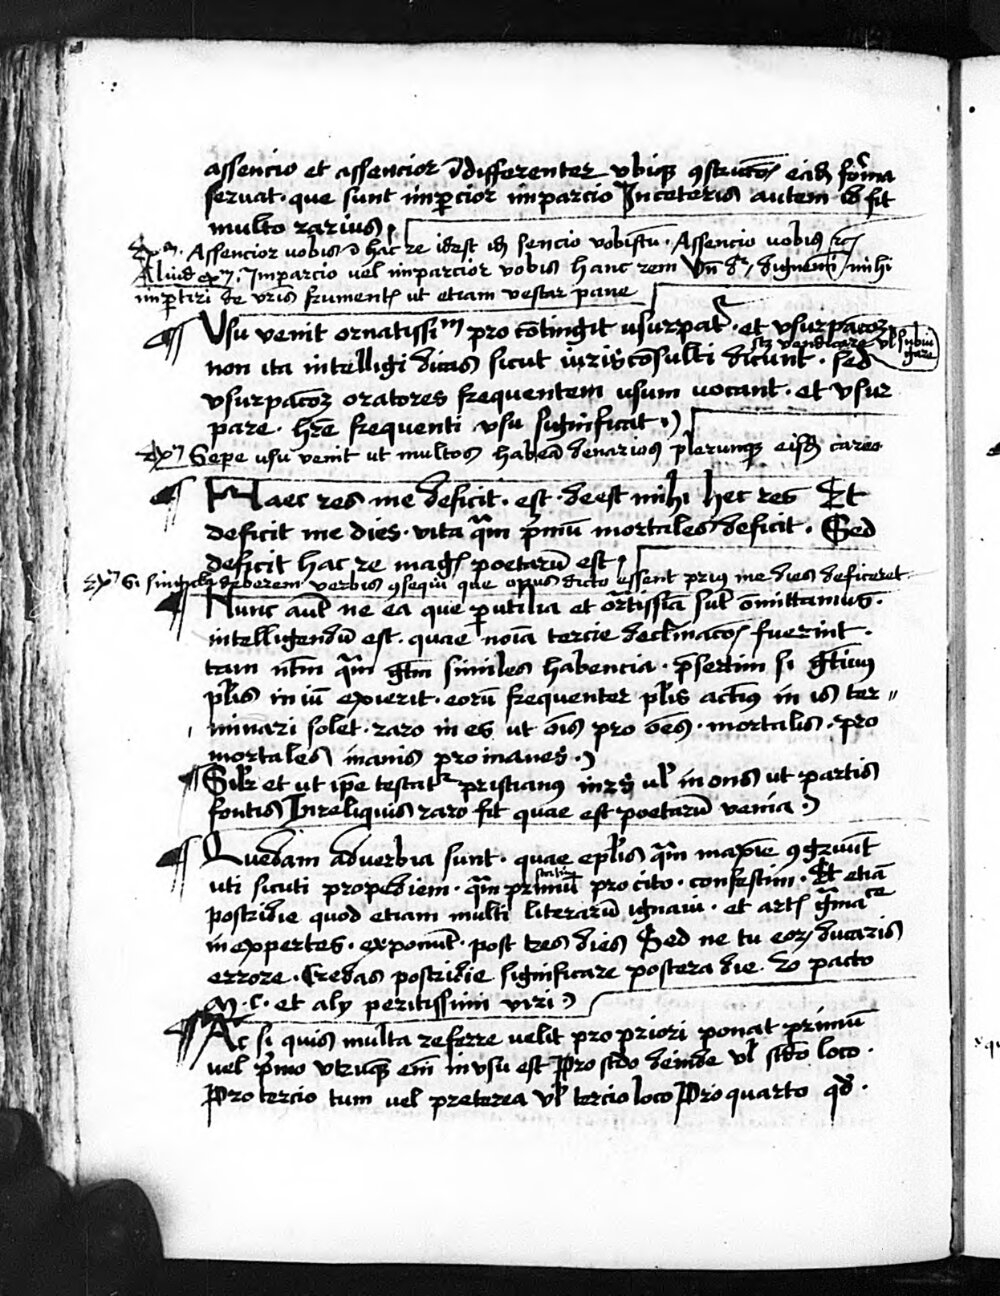 assencio et assencior īdifferenter vbiqꝫ ꝯstructōꝫ eād form̄a
seruat · que sunt imꝑcior imparcio Inceteris autem id fit
multo rarius
exm̄ · Assencior uobis ī hac re idest id sencio vobistū · Assencio uobis rc̄
Aliud exm̄ · Imparcio vel imparcior vobis hanc rem Vn̄ dr̄ dignemī mihi
imꝑtiri de vr̄is frumentꝭ ut etiam vestar pane
Vsu venit ornatissiᵐ pro cōtingit usurpat᷑ · et vsurpacōꝫ
stꝫ vendicare vl̄ subiugare
non ita intelligi ducas sicut iurꝭcōsulti dicunt · sed
vsurpacōꝫ oratores frequentem usum uocant · et vsur
pare · hr̄e frequenti vsu significat
exm̄ Sepe usu venit ut multos habeā denarios plerunqꝫ eisd̄ careo
Haec res me deficit · est · deest mihi hec res Et
deficit me dies · vita qᷓm pͥmū mortales deficit · Sed
deficit hac re magꝭ poetarū est
exm̄ Si singulꝭ deberem verbis ꝯsequi que opus dicto essent prius me dies deficeret
Nunc aut̄ ne ea que ꝑutilia et orͣtissīa sut̄ omittamus ·
intelligendū est · quae noīa tercie declinacōꝫ fuerint ·
tam nt̄m qᷓm gt̄m similes habencia · p̄sertim si gt̄iuus
pl̄is in iū exierit · eorū frequenter pl̄is actiūs in is ter〃
minari solet · raro in es ut oīs pro oēs · mortalis · pro
mortales inanis pro inanes ·
Silr̄ et ut ip̄e testat᷑ pristianus in rs̄ vl̄ in ons ut · partis
fontis Inreliquis raro fit quae est poetarū venia ·
Quedam aduerbia sunt · quae epl̄is qᷓm maxīe ꝯgruūt
statim
uti sicuti propediem · qᷓm primū pro cito · confestim · Et etiā
postridie quod etiam multi literarū ignaui · et artꝭ gͣmaᶜᵉ
inexpertes · exponūt · post tres dies Sed ne tu eorꝫ ducaris
errore · Credas postridie significare postera die · eo pacto
M · C · et aly peritissimi viri
Ac si quis multa referre uelit pro priori ponat primū
uel pͥmo vtrūqꝫ em̄ in usu est Pro scd̄o deinde vl̄ scd̄o loco ·
Pro tercio tum vel preterea vl̄ tercio loco Pro quarto qd̄ ·